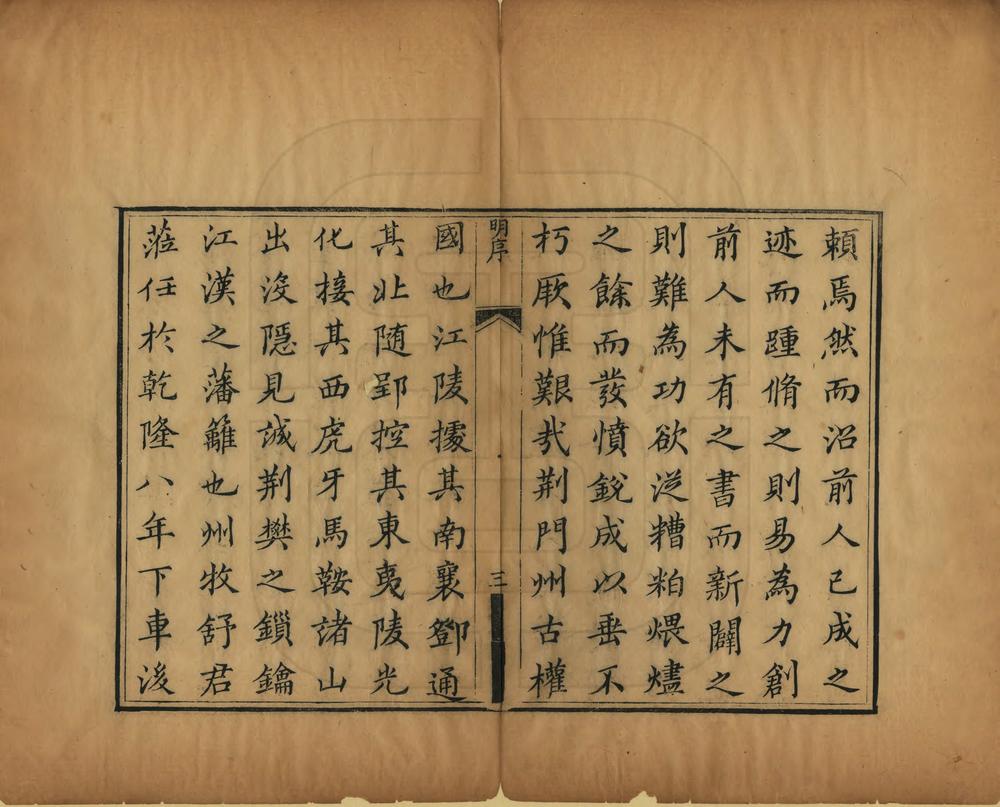 賴焉然而沿前人已成之
迹而踵脩之則易為力創
前人未有之書而新闢之
則難為功欲從糟粕煨燼
之餘而發憤銳成以垂不
朽厥惟艱哉荆門州古權
明序
三
國也江陵據其南襄鄧通
其北随郢控其東夷陵光
化接其西虎牙馬鞍諸山
出沒隱見誠荆樊之鎖鑰
江漢之藩籬也州牧舒君
蒞任於乾隆八年下車後